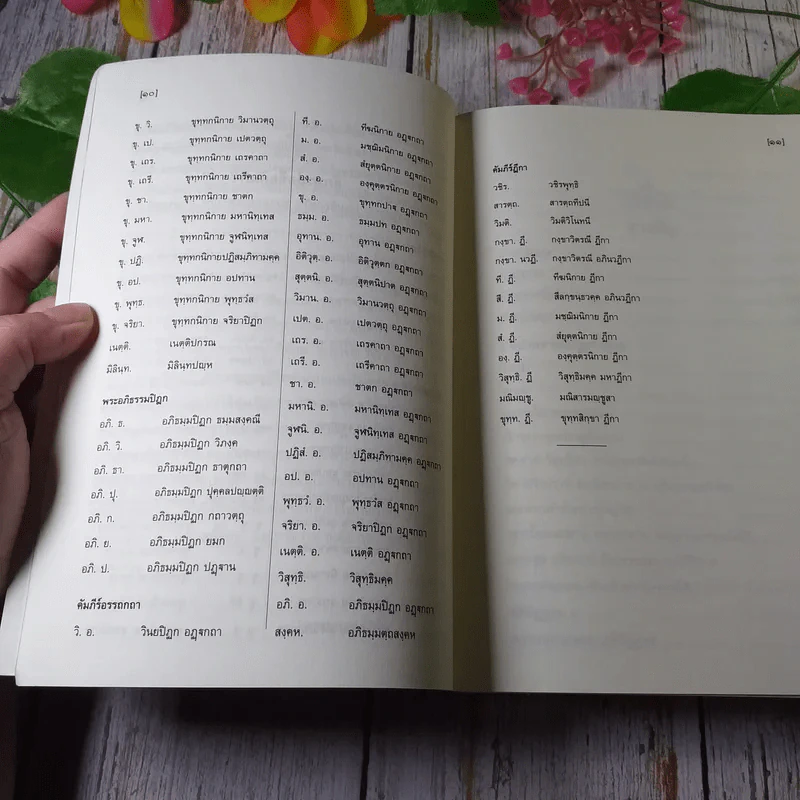 [๑๐]
ขุ. วิ. ขุทฺทกนิกาย วิมานวตฺถุ
ขุ. เป. ขุทฺทกนิกาย เปตวตฺถุ
ขุ. เถร. ขุทฺทกนิกาย เถรคาถา
ขุ. เถรี. ขุทฺทกนิกาย เถรีคาถา
ขุ. ชา. ขุทฺทกนิกาย ชาตก
ขุ. มหา. ขุทฺทกนิกาย มหานิทฺเทส
ขุ. จูฬ. ขุทฺทกนิกาย จูฬนิทฺเทส
ขุ. ปฏิ. ขุทฺทกนิกาย ปฏิสมฺภิทามคฺค
ขุ. อป. ขุทฺทกนิกาย อปทาน
ขุ. พุทฺธ. ขุทฺทกนิกาย พุทฺธวํส
ขุ. จริยา. ขุทฺทกนิกาย จริยาปิฏก
เนตฺติ. เนตฺติปกรณ
มิลินฺท. มิลินฺทปญฺห
พระอภิธรรมปิฎก
อภิ. ธ. อภิธมฺมปิฏก ธมฺมสงฺคณี
อภิ. วิ. อภิธมฺมปิฏก วิภงฺค
อภิ. ธา. อภิธมฺมปิฏก ธาตุกถา
อภิ. ปุ. อภิธมฺมปิฏก ปุคฺคลปญฺญตฺติ
อภิ. ก. อภิธมฺมปิฏก กถาวตฺถุ
อภิ. ย. อภิธมฺมปิฏก ยมก
อภิ. ป. อภิธมฺมปิฏก ปฏฺฐาน
คัมภีร์อรรถกถา
วิ. อ. วินยปิฏก อฏฺฐกถา
ที. อ. ทีฆนิกาย อฏฺฐกถา
ม. อ. มชฺฌิมนิกาย อฏฺฐกถา
สํ. อ. สํยุตฺตนิกาย อฏฺฐกถา
องฺ. อ. องฺคุตฺตรนิกาย อฏฺฐกถา
ขุ. อ. ขุทฺทกปาฐ อฏฺฐกถา
ธมฺม. อ. ธมฺมปท อฏฺฐกถา
อุทาน. อ. อุทาน อฏฺฐกถา
อิติวุตฺ. อ. อิติวุตฺตก อฏฺฐกถา
สุตฺตนิ. อ. สุตฺตนิปาต อฏฺฐกถา
วิมาน. อ. วิมานวตฺถุ อฏฺฐกถา
เปต. อ. เปตวตฺถุ อฏฺฐกถา
เถร. อ. เถรคาถา อฏฺฐกถา
เถรี. อ. เถรีคาถา อฏฺฐกถา
ชา. อ. ชาตก อฏฺฐกถา
มหานิ. อ. มหานิทฺเทส อฏฺฐกถา
จูฬนิ. อ. จูฬนิทฺเทส อฏฺฐกถา
ปฏิสํ. อ. ปฏิสมฺภิทามคฺค อฏฺฐกถา
อป. อ. อปทาน อฏฺฐกถา
พุทฺธวํ. อ. พุทฺธวํส อฏฺฐกถา
จริยา. อ. จริยาปิฏก อฏฺฐกถา
เนตฺติ. อ. เนตฺติ อฏฺฐกถา
วิสุทฺธิ. วิสุทฺธิมคฺค
อภิ. อ. อภิธมฺมปิฏก อฏฺฐกถา
สงฺคห. อภิธมฺมตฺถสงฺคห
[๑๑]
คัมภีร์ฎีกา
วชิร. วชิรพุทฺธิ
สารตฺถ. สารตฺถทีปนี
วิมติ. วิมติวิโนทนี
กงฺขา. ฏี. กงฺขาวิตรณี ฏีกา
กงฺขา. นวฏี. กงฺขาวิตรณี อภินวฏีกา
ที. ฏี. ทีฆนิกาย ฏีกา
สี. ฏี. สีลกฺขนฺธวคฺค อภินวฏีกา
ม. ฏี. มชฺฌิมนิกาย ฏีกา
สํ. ฏี. สํยุตฺตนิกาย ฏีกา
องฺ. ฏี. องฺคุตฺตรนิกาย ฏีกา
วิสุทฺธิ. ฏี วิสุทฺธิมคฺค มหาฏีกา
มณิมญฺชู. มณิสารมญฺชูสา
ขุทฺท. ฏี. ขุทฺทสิกฺขา ฏีกา